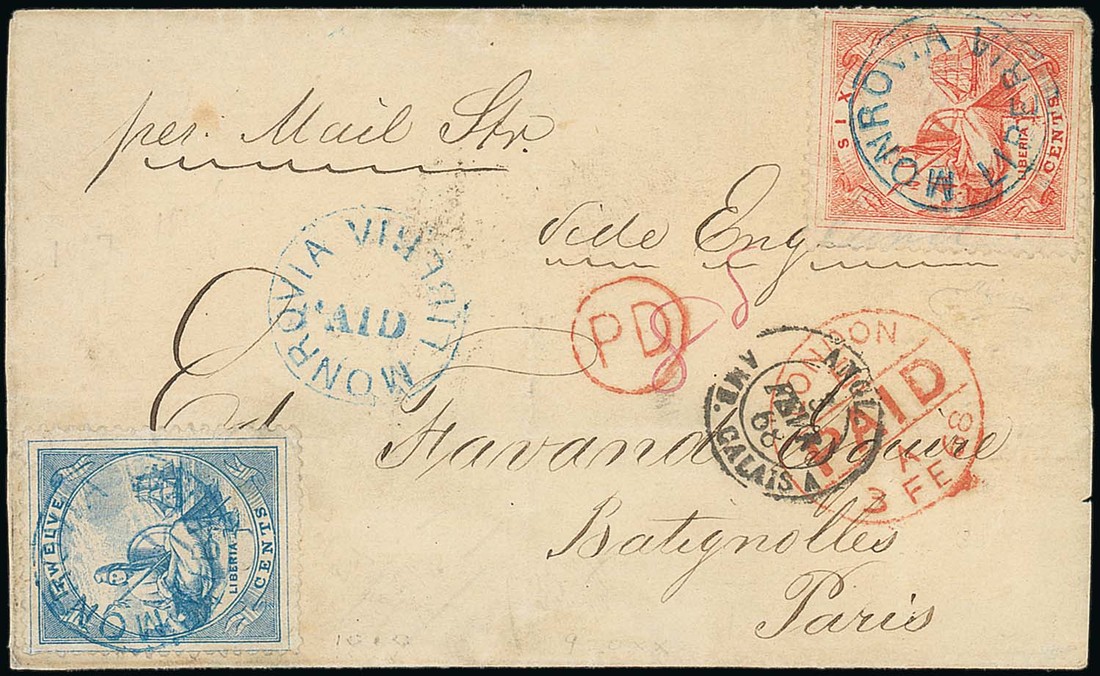 SIX
CENTS
LIBERIA
MONROVIA LIBERIA
per Mail Str.
vide Eng
MONROVIA LIBERIA
PAID
PD
LONDON
PAID
3 A
FE 68
ANGL.
AMB. CALAIS A
3
FEVR
68
Ed. Favand Esquire
Batignolles
Paris
TWELVE
CENTS
LIBERIA
MON